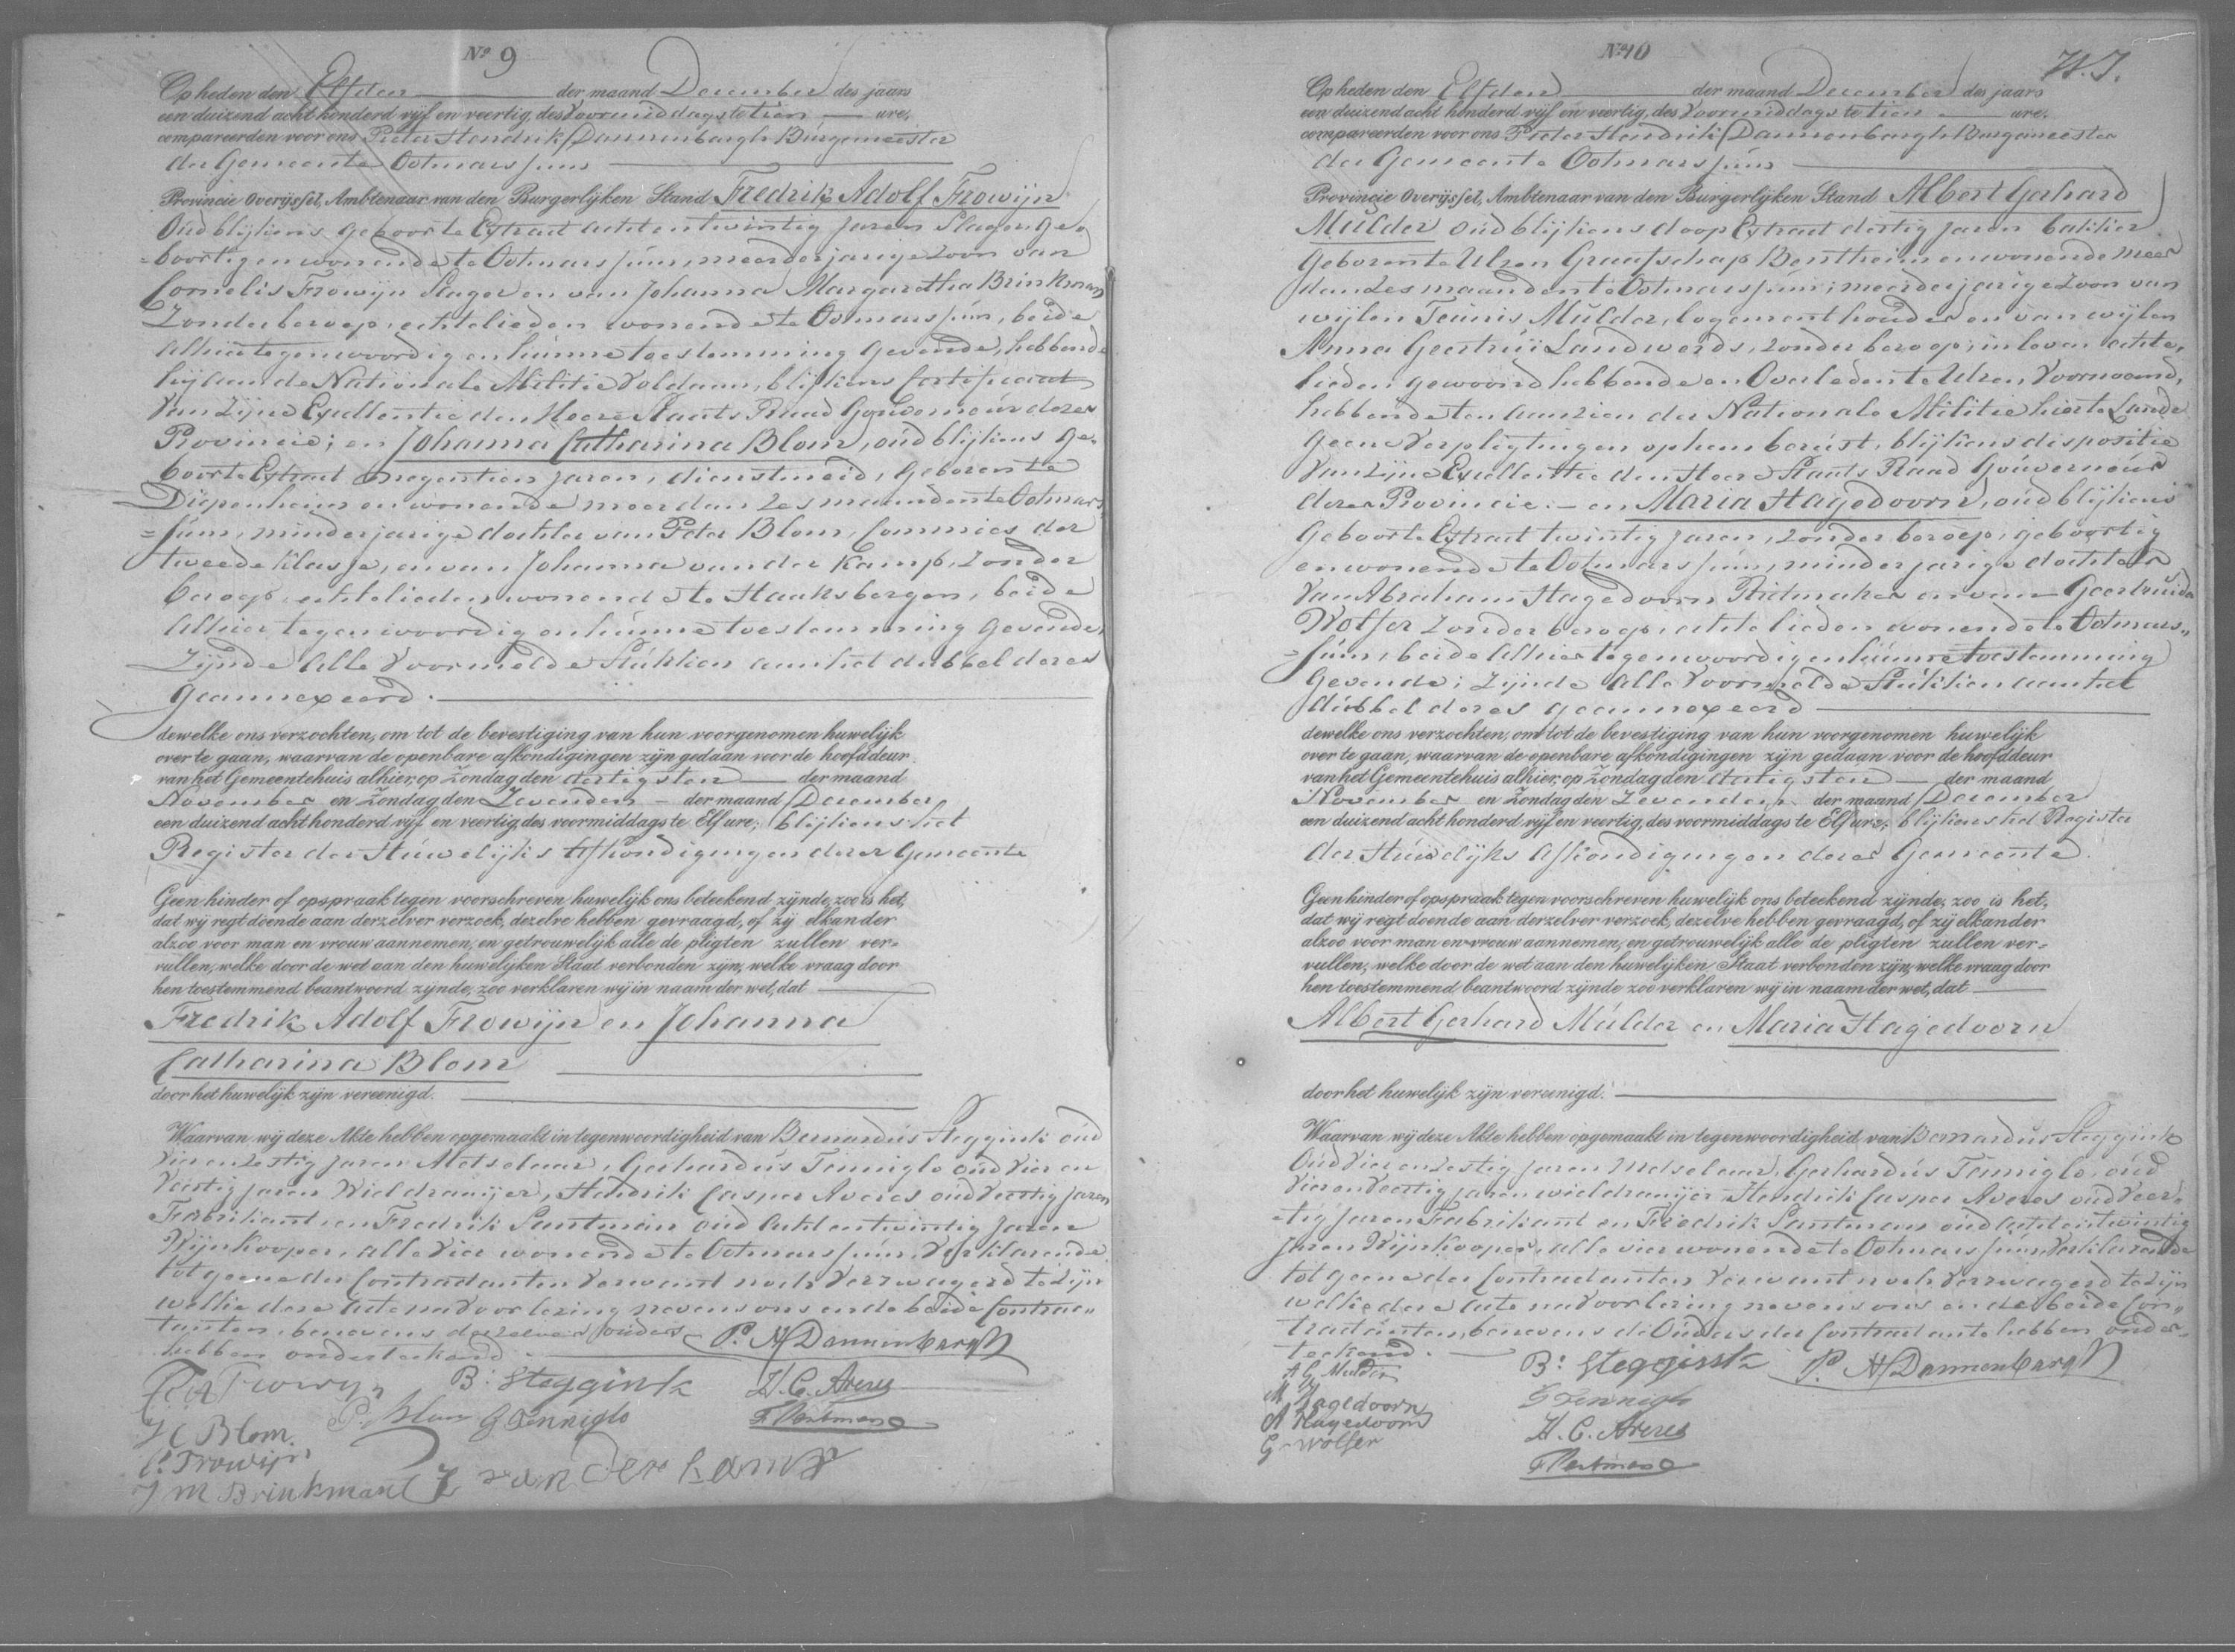 No 9
Op heden den Elfden der maand December des jaars
een duizend acht honderd vijf en veertig, des Voormiddags te tien ure,
compareerden voor ons Pieter Hendrik Dannenbargh Burgemeester
der Gemeente Ootmarssum
Provincie Overijssel, Ambtenaar van den Burgerlijken Stand Fredrik Adolf Frowijn
Oud blijkens geboorte Extract acht en twintig Jaren Slager, ge-
=boortig en wonende te Ootmarssum, meerderjarige Zoon van
Cornelis Frowijn Slager en van Johanna Margaretha Brinkman
Zonder beroep, echtelieden wonende te Ootmarssum, beide
alhier tegenwoordig en hunne toestemming gevende, hebbende
hij aan de Nationale Militie Voldaan, blijkens Certificaat
van Zijne Excellentie den Heere Staats Raad Gouverneur dezer
Provincie; en Johanna Catharina Blom, oud blijkens ge-
boorte Extract negentien jaren, dienstmeid, geboren te
Diepenheim en wonende meer dan Zes maanden te Ootmars
=sum, minderjarige dochter van Peter Blom, Commies der
tweede Klasse, en van Johanna van der Kamp, Zonder
beroep, echtelieden wonende te Haaksbergen, beide
alhier tegenwoordig en hunne toestemming gevende,
Zijnde alle Voormelde Stukken aan het dubbel dezes
geannexeerd.
dewelke ons verzochten, om tot de bevestiging van hun voorgenomen huwelijk
over te gaan, waarvan de openbare afkondigingen zijn gedaan voor de hoofddeur
van het Gemeentehuis alhier, op Zondag den dertigsten der maand
November en Zondag den Zevenden der maand December
een duizend acht honderd vijf en veertig, des voormiddags te Elf ure; blijkens het
Register der Huwelijks Afkondigingen dezer Gemeente
Geen hinder of opspraak tegen voorschreven huwelijk ons beteekend zijnde, zoo is het,
dat wij regt doende aan derzelver verzoek, dezelve hebben gevraagd, of zij elkander
alzoo voor man en vrouw aannemen, en getrouwelijk alle de pligten zullen ver-
vullen, welke door de wet aan den huwelijken Staat verbonden zijn, welke vraag door
hen toestemmend beantwoord zijnde, zoo verklaren wij in naam der wet, dat
Fredrik Adolf Frowijn en Johanna
Catharina Blom
door het huwelijk zijn vereenigd.
Waarvan wij deze Akte hebben opgemaakt in tegenwoordigheid van Bernardus Steggink oud
Vier en Zestig jaren Metselaar, Gerhardus Tenniglo oud Vier en
Veertig jaren Wieldraaijer, Hendrik Casper Averes oud Veertig jaren
Fabrikant en Fredrik Santman oud Acht en twintig Jaren
Wijnkooper, alle Vier wonende te Ootmarssum, Verklarende
tot geene der Contractanten Verwant noch Verzwagerd te Zijn
welke deze acte na Voorlezing nevens ons en de beide Contrac„
tanten, benevens derzelver ouders
hebben onderteekend.
P. H Dannenbargh
F A Frowijn B: Steggink H. C. Averes
J C Blom. P. Blom G Tenniglo F Santman
C. Frowijn
J M Brinkman J van der kamp
No 10
H. J.
Op heden den Elfden der maand December des jaars
een duizend acht honderd vijf en veertig, des Voormiddags te tien ure,
compareerden voor ons Pieter Hendrik Dannenbargh Burgemeester
der Gemeente Ootmarssum
Provincie Overijssel, Ambtenaar van den Burgerlijken Stand Albert Gerhard
Mulder oud blijkens doop Extract dertig jaren bakker
geboren te Ulzen Graafschap Bentheim en wonende meer
dan Zes maanden te Ootmarssum; meerderjarige Zoon van
wijlen Teunis Mulder, logementhouder en van wijlen
Anna Geertrui Landwerds, zonder beroep, in leven echte-
lieden gewoond hebbende en Overleden te Ulzen Voornoemd,
hebbende ten aanzien der Nationale Militie hier te Lande
geene Verpligtingen op hem berust, blijkens dispositie
Van Zijne Excellentie den Heere Staats Raad Gouverneur
dezer Provincie. - en Maria Hagedoorn, oud blijkens
Geboorte Extract twintig jaren, zonder beroep, geboortig
en wonende te Ootmarssum, minderjarige dochter
Van Abraham Hagedoorn Rietmaker en van Geertruida
Wolfer Zonder beroep, echtelieden wonende te Ootmars„
=sum, beide Alhier tegenwoordig en hunne toestemming
gevende; Zijnde alle Voormelde Stukken aan het
dubbel dezes geannexeerd
dewelke ons verzochten, om tot de bevestiging van hun voorgenomen huwelijk
over te gaan, waarvan de openbare afkondigingen zijn gedaan voor de hoofddeur
van het Gemeentehuis alhier, op Zondag den dertigsten der maand
November en Zondag den Zevenden der maand December
een duizend acht honderd vijf en veertig, des voormiddags te Elf ure; blijkens het Register
der Huwelijks Afkondigingen dezer Gemeente.
Geen hinder of opspraak tegen voorschreven huwelijk ons beteekend zijnde, zoo is het,
dat wij regt doende aan derzelver verzoek, dezelve hebben gevraagd, of zij elkander
alzoo voor man en vrouw aannemen, en getrouwelijk alle de pligten zullen ver-
vullen, welke door de wet aan den huwelijken Staat verbonden zijn, welke vraag door
hen toestemmend beantwoord zijnde zoo verklaren wij in naam der wet, dat
Albert Gerhard Mulder en Maria Hagedoorn
door het huwelijk zijn vereenigd.
Waarvan wij deze Akte hebben opgemaakt in tegenwoordigheid van Bernardus Steggink
Oud Vier en Zestig jaren Metselaar, Gerhardus Tenniglo, oud
Vier en Veertig jaren wieldraaijer, Hendrik Casper Averes oud Veer-
=tig jaren Fabrikant en Fredrik Santman oud acht en twintig
Jaren Wijnkooper, alle vier wonende te Ootmarssum, Verklarende
tot geene der Contractanten Verwant noch Verzwagerd te Zijn
welke deze acte na Voorlezing nevens ons en de beide Con„
tractanten, benevens de Ouders der Contractante hebben onder-
teekend.
A G Mulder B: Steggink P. H Dannenbargh
M Hagedoorn G Tenniglo
A Hagedoorn H. C. Averes
G Wolfer F Santman